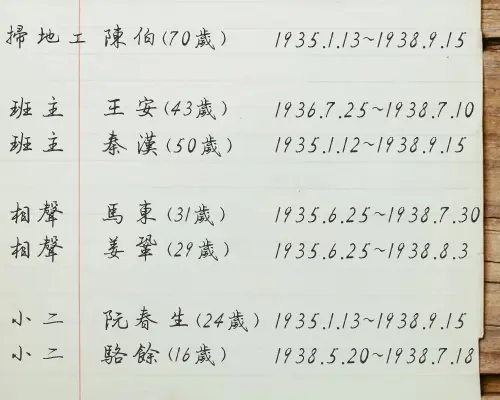 掃地工 陳伯(70歲) 1935.1.13~1938.9.15
班主 王安(43歲) 1936.7.25~1938.7.10
班主 秦漢(50歲) 1935.1.12~1938.9.15
相聲 馬東(31歲) 1935.6.25~1938.7.30
相聲 姜鞏(29歲) 1935.6.25~1938.8.3
小二 阮春生(24歲) 1935.1.13~1938.9.15
小二 駱餘(16歲) 1938.5.20~1938.7.18